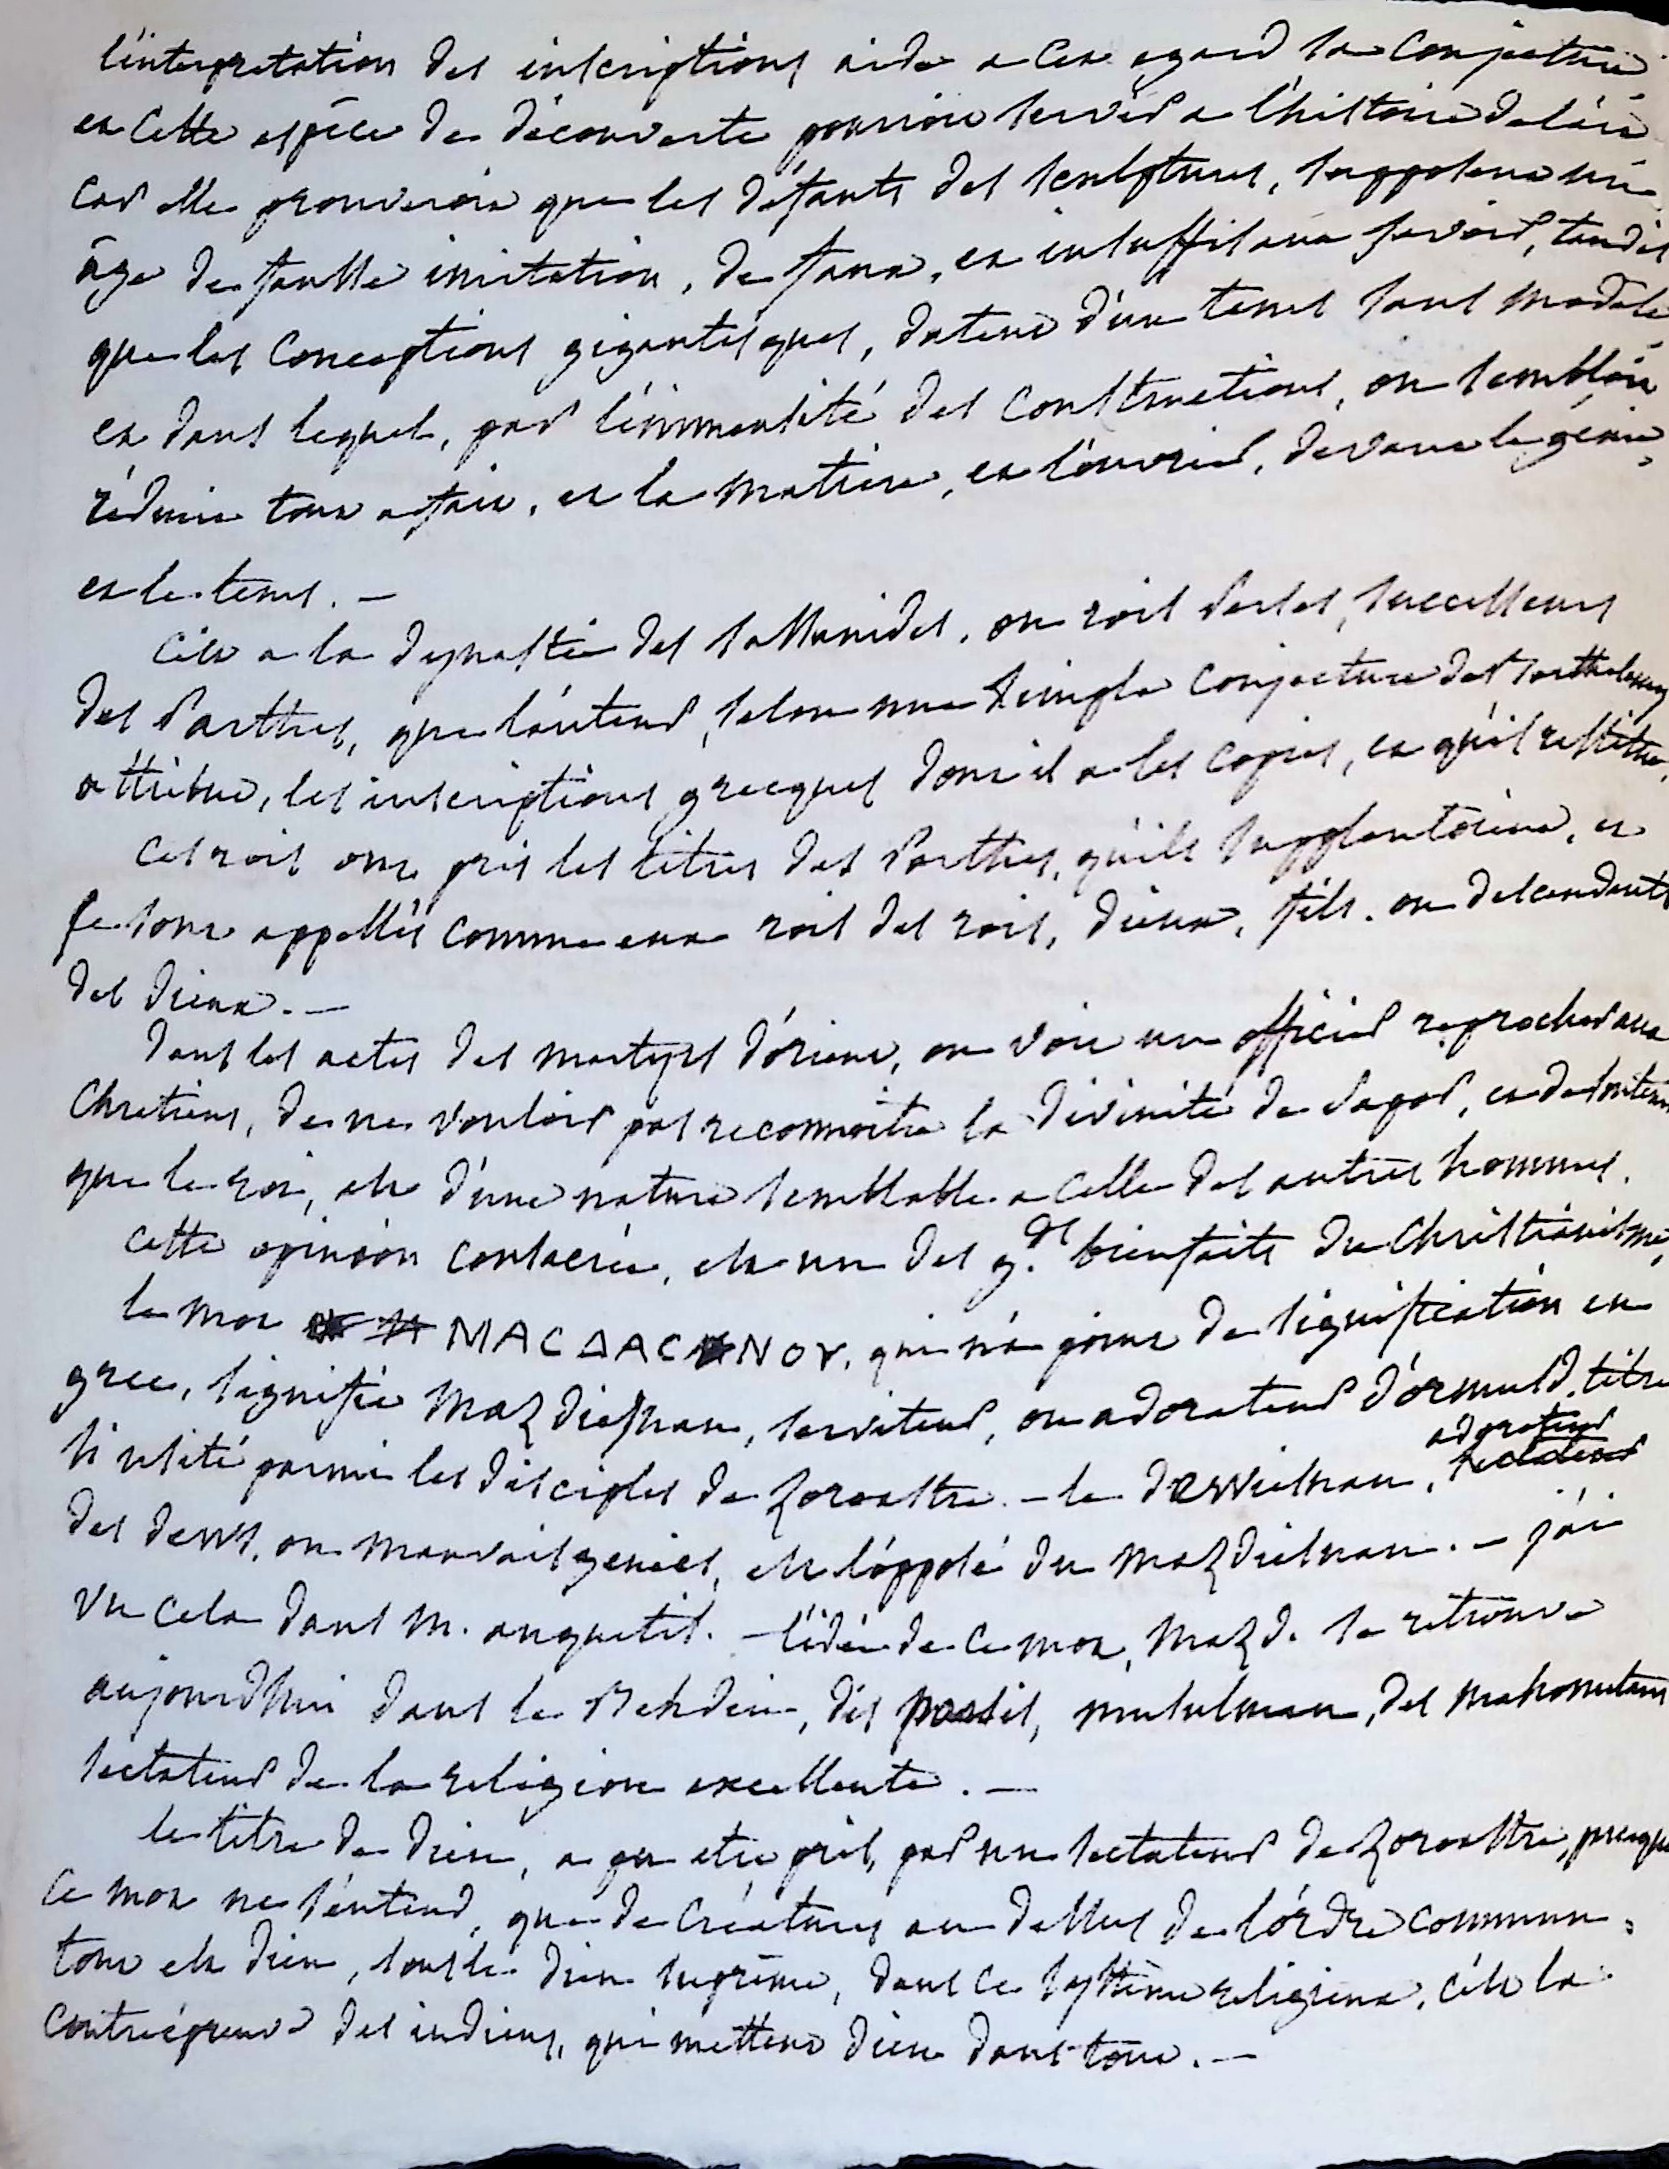 l'interprétation des inscriptions aide a cet egard la conjecture
et cette espèce de découverte pourroit servir a l'histoire de l'art
car elle prouveroit que les défauts des sculptures, supposent un
âge de fausse imitation, de faux, et insuffisant savoir, tandis
que les conceptions gigantesques, datent d'un tems sans modèle
et dans lequel, par l'immensité des constructions, on sembloit
réduire tout a fait, et la matière, et l'ouvrier, devant le génie,
et le tems. —
c'est a la dynastie des Sassanides, ou rois Perses, successeurs
des Parthes, que l'auteur, selon une simple conjecture de
attribue, les inscriptions grecques dont il a les copies, et qu'il restitue.
ces rois ont pris les titres des Parthes, qu'ils supplantoient, et
se sont appellés comme eux rois des rois, dieux, fils ou descendants
des dieux. —
dans les actes des martyrs d'orient, on voit un officier reprocher aux
Chretiens, de ne vouloir pas reconnoitre la divinité de Sapor, et de soutenir
que le roi, est d'une nature semblable a celle des autres hommes.
cette opinion consacrée, est un des g.ds bienfaits du Christianisme,
le mot MACDACNOY, qui n'a point de signification en
grec, signifie Mazdiesnan, serviteur, ou adorateur d'ormusd, titre
si usité parmi les disciples de Zoroastre. — le dewiesnan, sectateur adorateur
des dews, ou mauvais genies, est l'opposé du mazdiesnan. — j'ai
vu cela dans M. anquetil. — l'idée de ce mot, Mazd. se retrouve
aujourdhui dans le Behdin, des parsis, musulman, des mahometans
sectateur de la religion excellente. —
le titre de dieu, a pu etre pris, par un sectateur de Zoroastre, puisque
ce mot ne s'entend, que de créatures au dessus de l'ordre commun.
tout est dieu, sous le dieu suprême, dans ce système religieux, c'est la
contreépreuve des indiens, qui mettent dieu dans tout. —